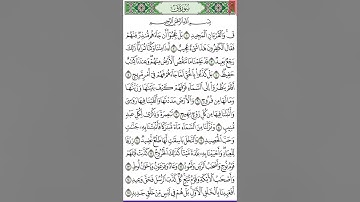 سورة ق
بسم الله الرحمن الرحيم
ق ۚ والقرءان المجيد ١ بل عجبوا أن جاءهم منذر منهم
فقال الكافرون هذا شيء عجيب ٢ أءذا متنا وكنا ترابا ذلك
رجع بعيد ٣ قد علمنا ما تنقص الأرض منهم وعندنا كتاب
حفيظ ٤ بل كذبوا بالحق لما جاءهم فهم في أمر مريج ٥
أفلم ينظروا إلى السماء فوقهم كيف بنيناها وزيناها
وما لها من فروج ٦ والأرض مددناها وألقينا فيها رواسي
وأنبتنا فيها من كل زوج بهيج ٧ تبصرة وذكرى لكل عبد
منيب ٨ ونزلنا من السماء ماء مباركا فأنبتنا به جنات
وحب الحصيد ٩ والنخل باسقات لها طلع نضيد ١٠ رزقا
للعباد وأحيينا به بلدة ميتا كذلك الخروج ١١ كذبت قبلهم
قوم نوح وأصحاب الرس وثمود ١٢ وعاد وفرعون وإخوان لوط ١٣
وأصحاب الأيكة وقوم تبع كل كذب الرسل فحق وعيد ١٤
أفعيينا بالخلق الأول بل هم في لبس من خلق جديد ١٥